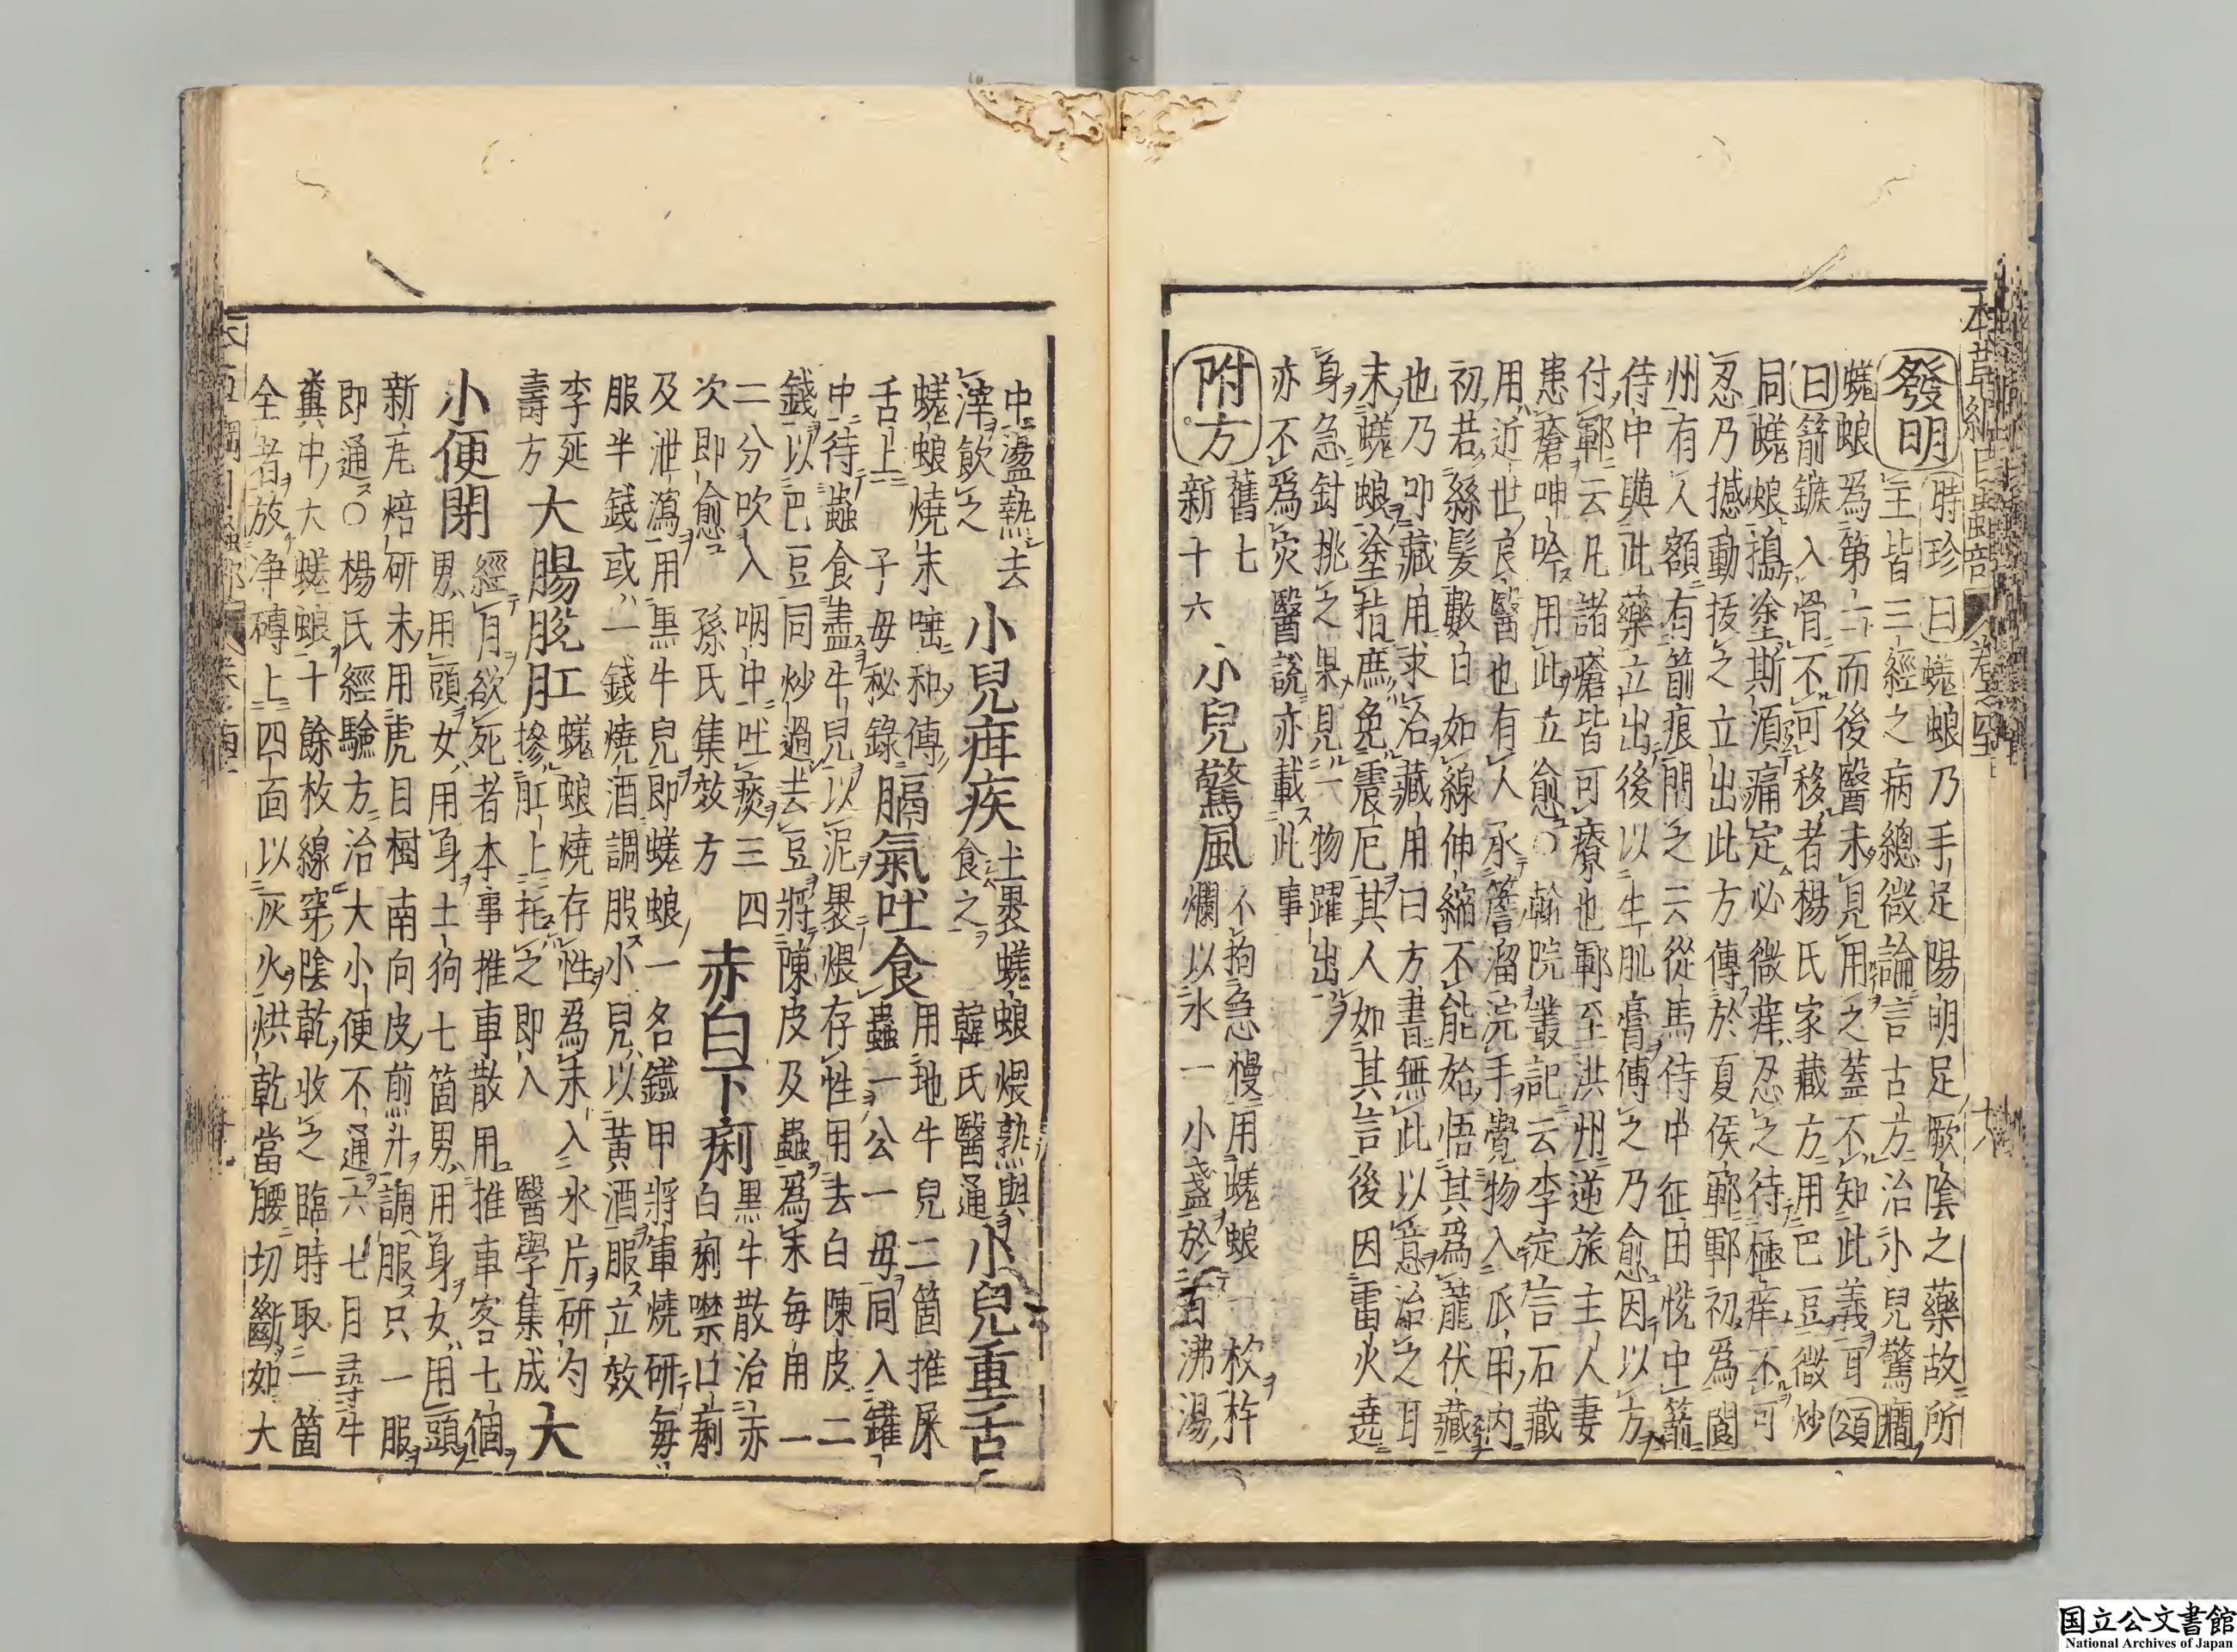 本草綱目蟲部 卷四十一
發明
時珍曰蜣蜋乃手足陽明足厥陰之藥故所
主皆三經之病總微論言古方治小兒驚癇
蜣蜋爲第一而後醫未見用之蓋不知此義耳頌
曰箭鏃入骨不可移者楊氏家藏方用巴豆微炒
同蜣蜋搗塗斯須痛定必微痒忍之待極痒不可
忍乃撼動拔之立出此方傳於夏侯鄆初爲閬
州有人額有箭痕問之云從馬侍中征田悅中箭
侍中與此藥立出後以生肌膏傅之乃愈因以方
付鄆云凡諸瘡皆可療也鄆至洪州逆旅主人妻
患瘡呻吟用此立愈○翰院叢記云李定言石藏
用近世良醫也有人承簷溜浣手覺物入爪甲內
初若絲髮數日如線伸縮不能始悟其爲龍伏藏
也乃叩藏用求治藏用曰方書無此以意治之耳
末蜣蜋塗指庶免震厄其人如其言後因雷火遶
身急針挑之果見一物躍出
亦不爲災醫説亦載此事
附方
舊七
新十六
小兒驚風
不拘急慢用蜣蜋一枚杵
爛以水一小盞於百沸湯
中盪熱去
滓飲之
小兒疳疾
土裹蜣蜋煨熟與
食之 韓氏醫通
小兒重舌
蜣蜋燒末唾和傅
舌上 子母秘錄
膈氣吐食
用地牛兒二箇推屎
蟲一公一母同入罐
中待蟲食盡牛兒以泥裹煨存性用去白陳皮二
錢以巴豆同炒過去豆將陳皮及蟲爲末每用一
二分吹入咽中吐痰三四
次即愈 孫氏集效方
赤白下痢
黑牛散治赤
白痢噤口痢
及泄瀉用黑牛兒即蜣蜋一名鐵甲將軍燒研每
服半錢或一錢燒酒調服小兒以黄酒服立效
李延
壽方
大腸脫肛
蜣蜋燒存性爲末入氷片研勻
摻肛上托之即入 醫學集成
大
小便閉
經月欲死者本事推車散用推車客七個
男用頭女用身土狗七箇男用身女用頭
新瓦焙研末用虎目樹南向皮煎汁調服只一服
即通○楊氏經驗方治大小便不通六七月尋牛
糞中大蜣蜋十餘枚線穿陰乾收之臨時取一箇
全者放净磚上四面以灰火烘乾當腰切斷如大
国立公文書館
National Archives of Japan